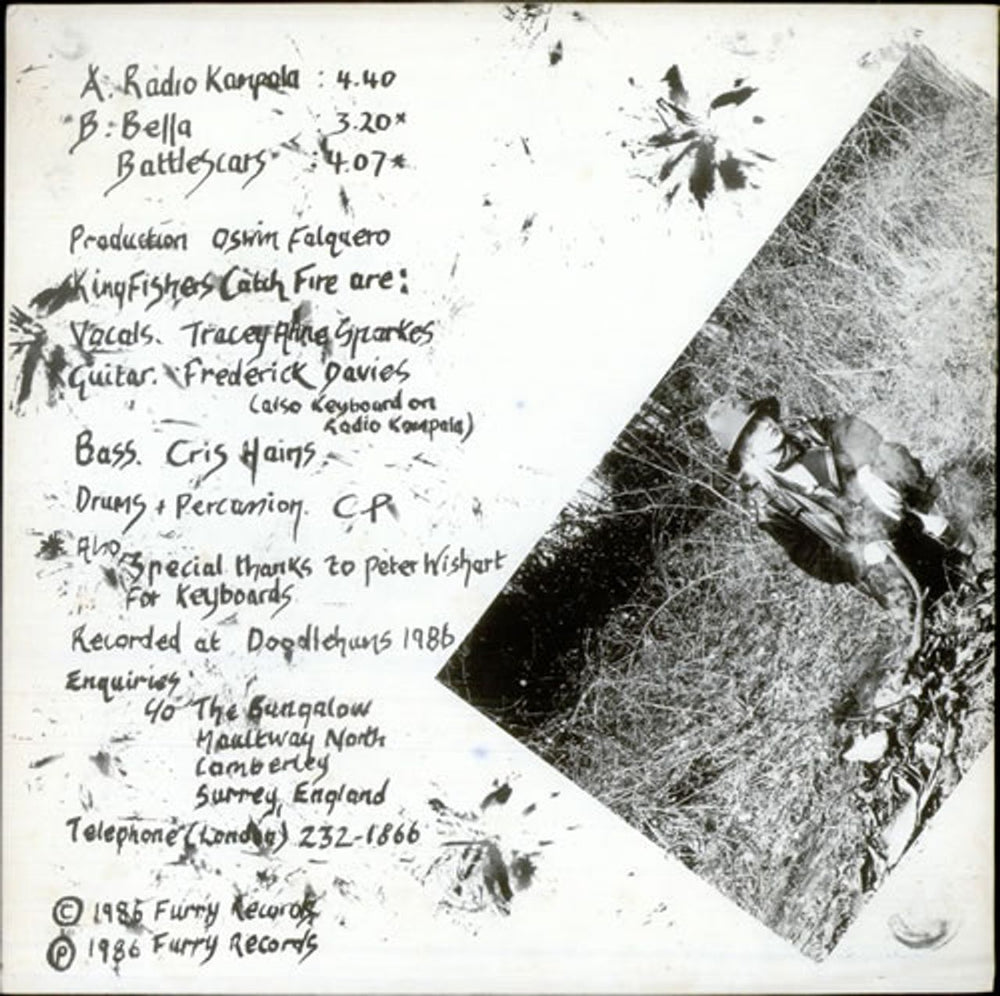 A: Radio Kampala : 4.40
B: Bella 3.20*
BattleScars : 4.07*
Production Oswin Falquero
KingFishers Catch Fire are:
Vocals. Tracey Anne Sparkes
Guitar. Frederick Davies
(also Keyboard on
Radio Kampala)
Bass. Cris Hains
Drums + Percussion. CP
Also
Special thanks to Peter Wishart
For Keyboards.
Recorded at 1986
Enquiries
c/o The Bungalow
Maultway North
Camberley
Surrey, England
Telephone (London) 232-1866
© 1986 Furry Records
℗ 1986 Furry Records